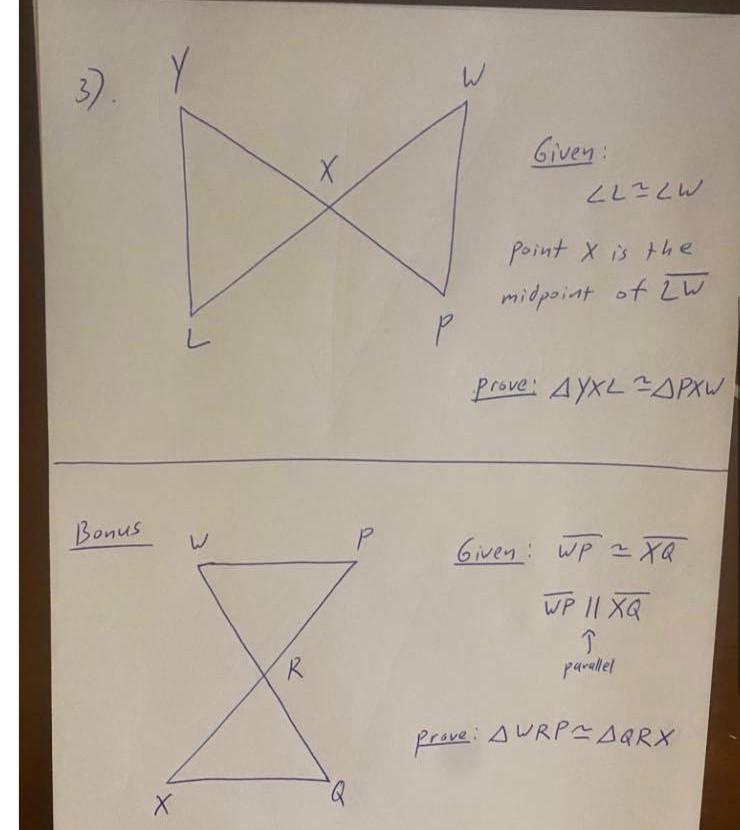 3).
Y
W
X
L
P
Given:
∠L ≅ ∠W
point X is the
midpoint of L̅W̅
prove: △YXL ≅ △PXW
Bonus
W
P
R
X
Q
Given: W̅P̅ ≅ X̅Q̅
W̅P̅ || X̅Q̅
↑
parallel
prove: △WRP ≅ △QRX